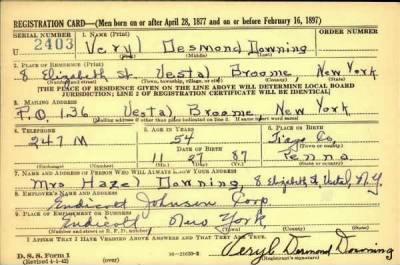 REGISTRATION CARD—(Men born on or after April 28, 1877 and on or before February 16, 1897)
SERIAL NUMBER 1. NAME (Print) ORDER NUMBER
U 2403 Veryl Desmond Downing
(First) (Middle) (Last)
2. PLACE OF RESIDENCE (Print)
8 Elizabeth St. Vestal Broome, New York
(Number and street) (Town, township, village, or city) (County) (State)
[THE PLACE OF RESIDENCE GIVEN ON THE LINE ABOVE WILL DETERMINE LOCAL BOARD
JURISDICTION; LINE 2 OF REGISTRATION CERTIFICATE WILL BE IDENTICAL]
3. MAILING ADDRESS
P.O. 136 Vestal Broome, New York
[Mailing address if other than place indicated on line 2. If same insert word same]
4. TELEPHONE 5. AGE IN YEARS 6. PLACE OF BIRTH
247 M 54 Tioga Co.
DATE OF BIRTH (Town or county)
11 27 87 Penna
(Exchange) (Number) (Mo.) (Day) (Yr.) (State or country)
7. NAME AND ADDRESS OF PERSON WHO WILL ALWAYS KNOW YOUR ADDRESS
Mrs Hazel Downing, 8 Elizabeth St, Vestal, N.Y.
8. EMPLOYER'S NAME AND ADDRESS
Endicott Johnson Corp
9. PLACE OF EMPLOYMENT OR BUSINESS
Endicott New York
(Number and street or R. F. D. number) (Town) (County) (State)
I AFFIRM THAT I HAVE VERIFIED ABOVE ANSWERS AND THAT THEY ARE TRUE.
D. S. S. Form 1
(Revised 4-1-42) (over) 16—21630-2
Veryl Desmond Downing
(Registrant's signature)